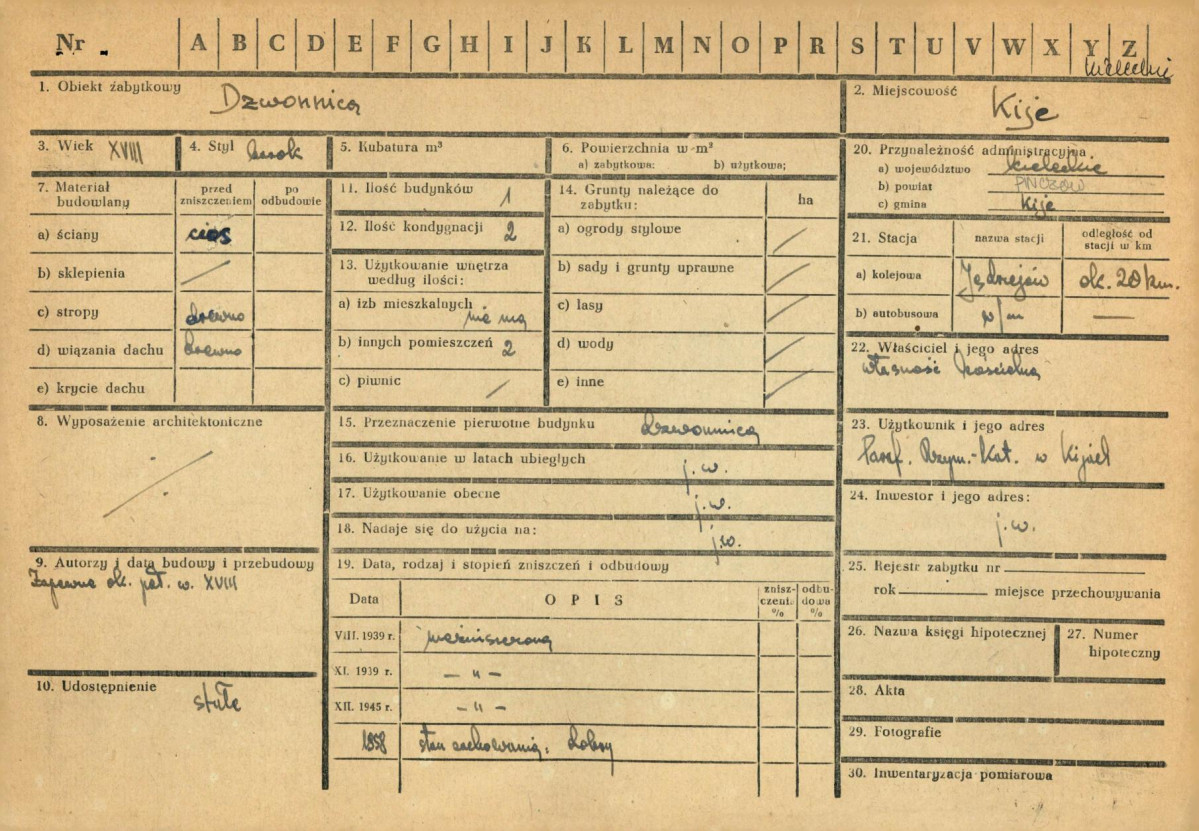 Nr . A B C D E F G H I J K L M N O P R S T U V W X Y Z
1. Obiekt zabytkowy Dzwonnica
2. Miejscowość Kije
3. Wiek XVIII
4. Styl barok
5. Kubatura m³
6. Powierzchnia w m²
a) zabytkowa: b) użytkowa;
7. Materiał budowlany
przed zniszczeniem
po odbudowie
a) ściany cios
b) sklepienia /
c) stropy drewno
d) wiązania dachu drewno
e) krycie dachu
8. Wyposażenie architektoniczne
9. Autorzy i data budowy i przebudowy
Zapewne ok. poł. w. XVIII
10. Udostępnienie stałe
11. Ilość budynków 1
12. Ilość kondygnacji 2
13. Użytkowanie wnętrza według ilości:
a) izb mieszkalnych nie ma
b) innych pomieszczeń 2
c) piwnic /
14. Grunty należące do zabytku: ha
a) ogrody stylowe /
b) sady i grunty uprawne /
c) lasy /
d) wody /
e) inne /
15. Przeznaczenie pierwotne budynku Dzwonnica
16. Użytkowanie w latach ubiegłych j.w.
17. Użytkowanie obecne j.w.
18. Nadaje się do użycia na: j.w.
19. Data, rodzaj i stopień zniszczeń i odbudowy
Data OPIS zniszczeni. % odbudowa %
VIII. 1939 r. nie zniszczona
XI. 1939 r. — " —
XII. 1945 r. — " —
1958 stan zachowania: dobry
20. Przynależność administracyjna
a) województwo kieleckie
b) powiat PIŃCZÓW
c) gmina Kije
21. Stacja nazwa stacji odległość od stacji w km
a) kolejowa Jędrzejów ok. 20 km.
b) autobusowa w/m —
22. Właściciel i jego adres
własność kościelna
23. Użytkownik i jego adres
Paraf. Rzym.-Kat. w Kijach
24. Inwestor i jego adres:
j.w.
25. Rejestr zabytku nr
rok miejsce przechowywania
26. Nazwa księgi hipotecznej
27. Numer hipoteczny
28. Akta
29. Fotografie
30. Inwentaryzacja pomiarowa